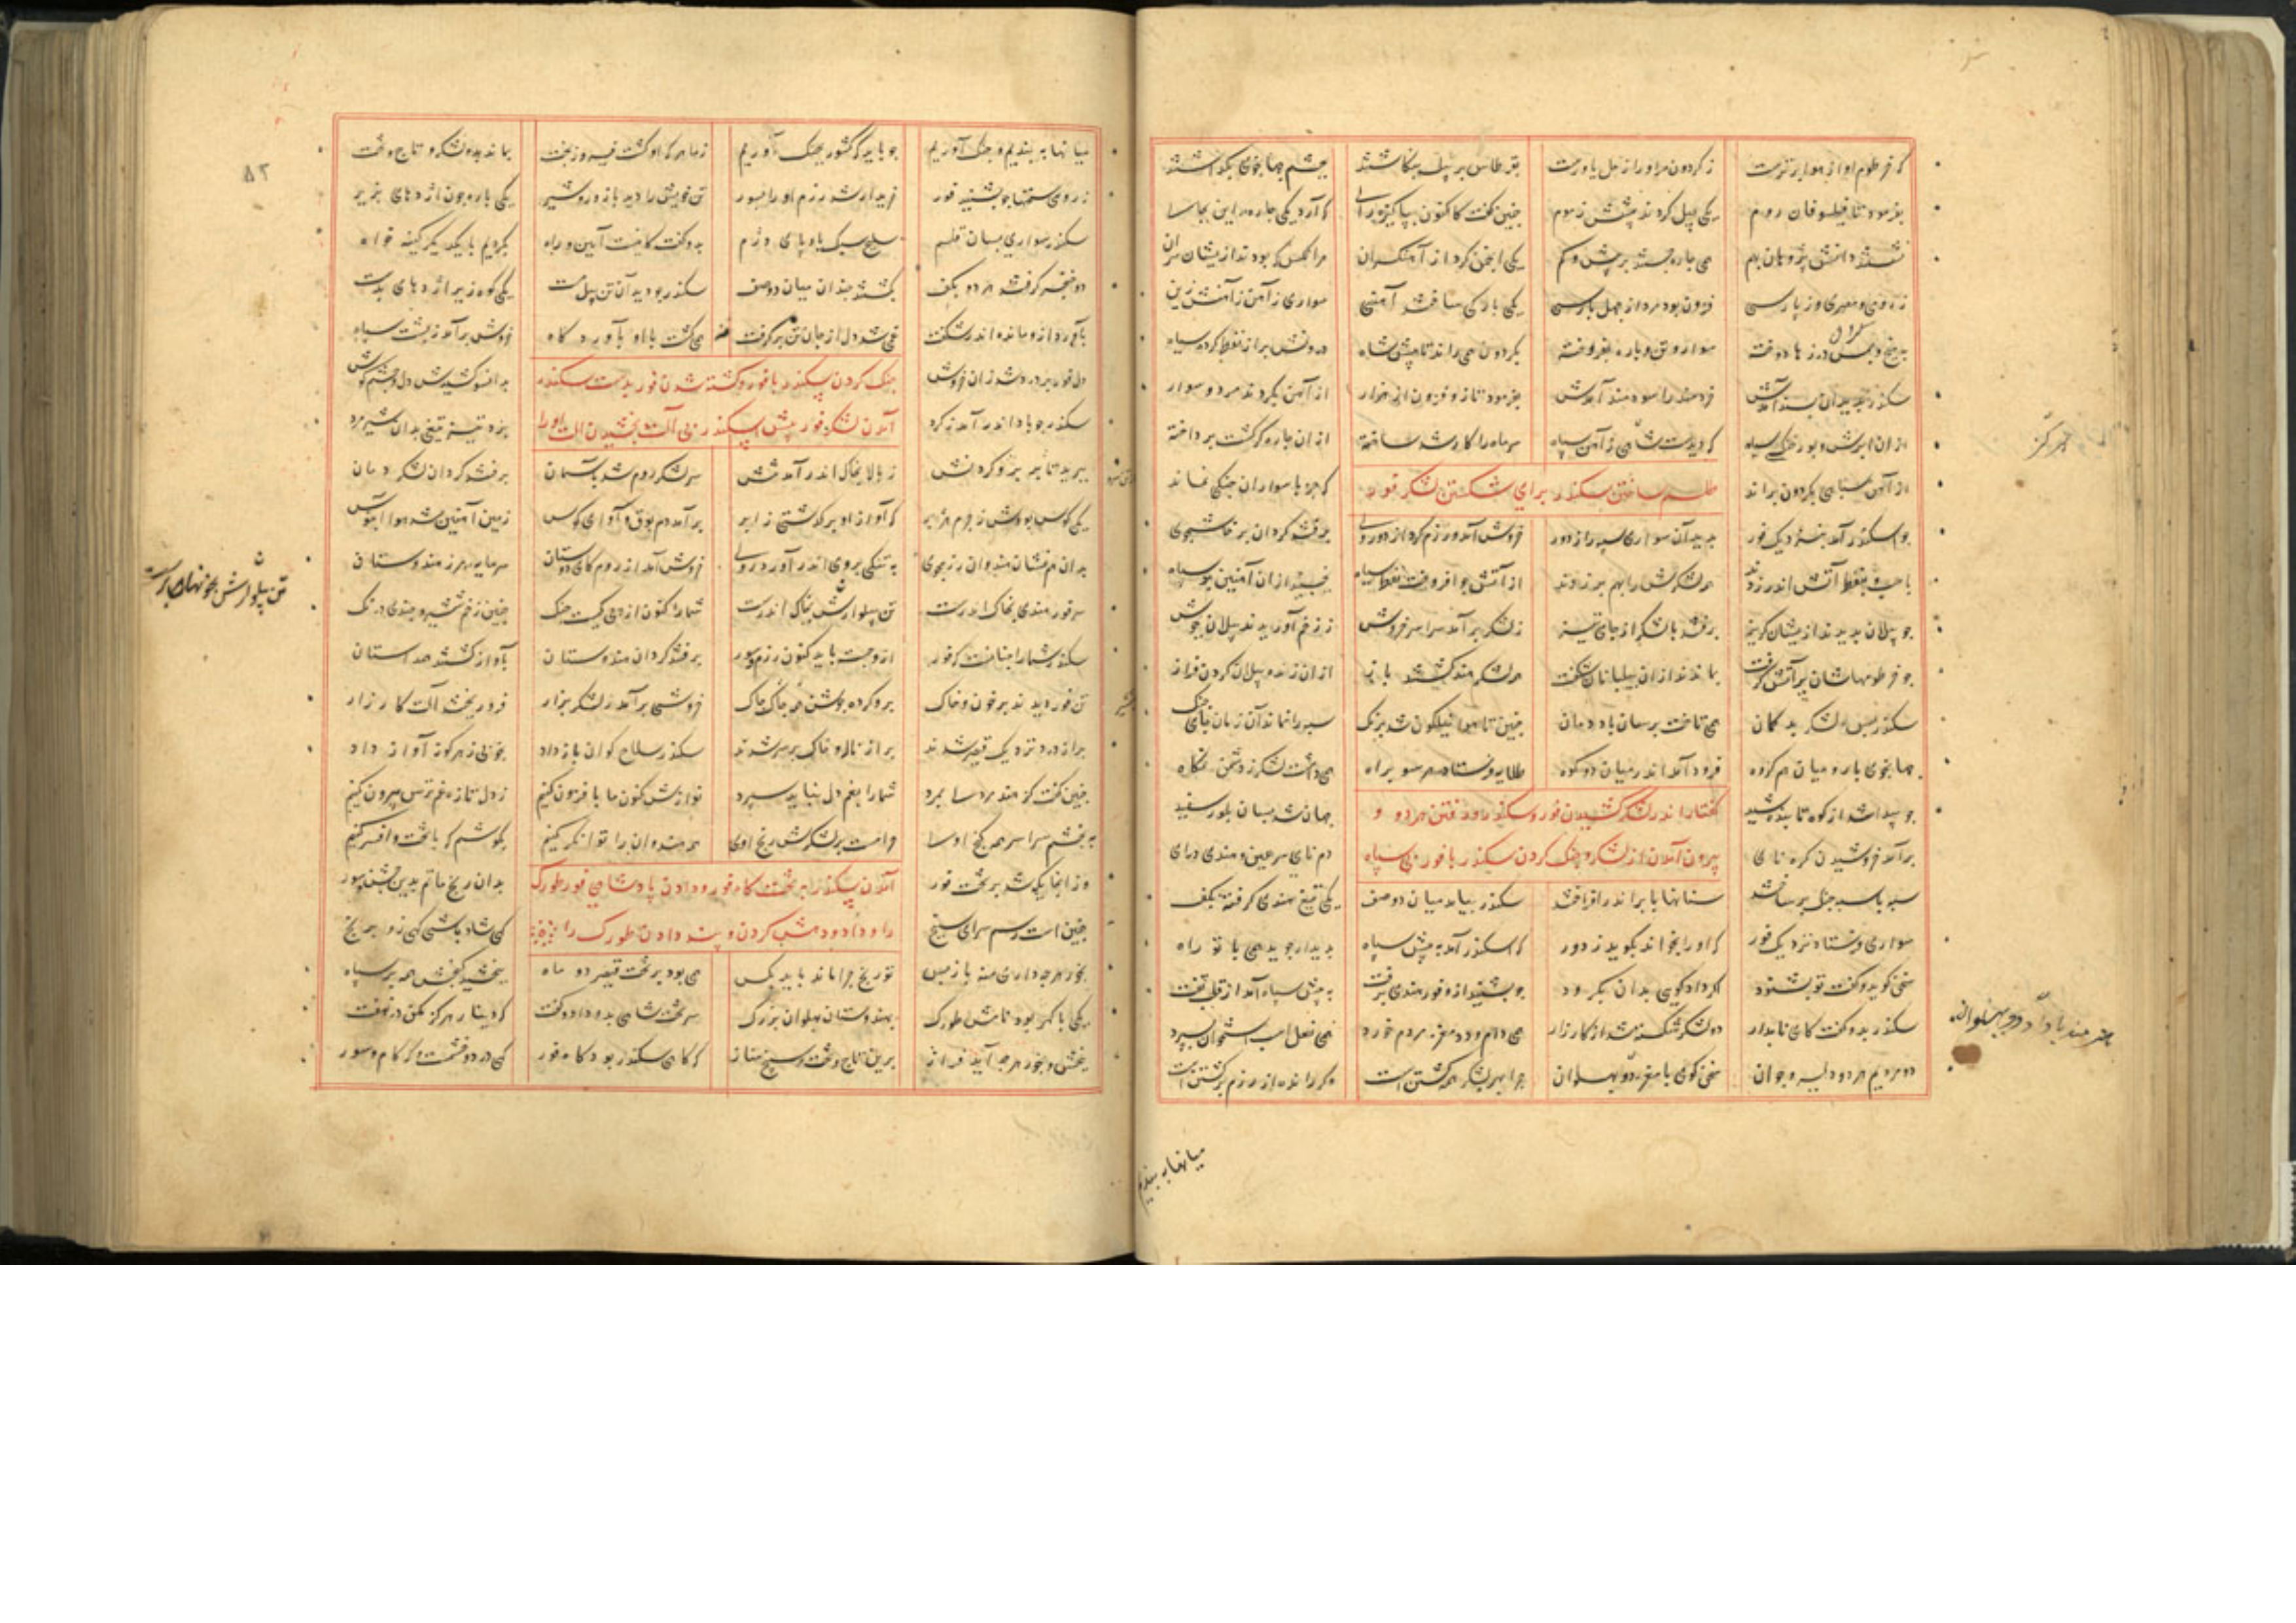 که خرطوم او از هوا برترست ز گردون مر او را ز میل یاورست بقرطاس بر پیل بنگاشتند بچشم جهانجوی بگذاشتند
بفرمود تا فیلسوفان روم یکی پیل کردند پیشش ز موم چنین گفت کاکنون بپاکیزه رای که آرد یکی چاره این بجا
نشستند دانش پژوهان بهم همی چاره جستند بر بیش و کم یکی انجمن کرد از آهنگران هر آنکس که بودند ازیشان سران
ز رومی و مصری و از پارسی فزون بود مرد از چهل بار سی یکی بارگی ساختند آهنین سواری ز آهن ز آهنش زین
به میخ و بمس درزها دوخته سوار و تن باره بفروخته بگردون همی راند تا پیش شاه درونش پر از نفط کرده سیاه
سکندر بدید آن پسند آمدش خردمند را سودمند آمدش بفرمود تا زو فزون از هزار از آهن بکردند مرد و سوار
از ان ابرش و بور و خنگ و سیاه که دیدست شاهی ز آهن سپاه سر ماه را کار شد ساخته از ان چاره گر گشت پرداخته
از آهن سپاهی بگردون براند طلسم ساختن سکندر برای شکستن لشکر فور که جز با سواران جنگی نماند
جو اسکندر آمد بنزدیک فور بدید آن سواری سپه را ز دور خروش آمد و رزم کرد از دو روی برفتند گردان پرخاشجوی
باسب و بنفط آتش اندر زدند همه لشکرش را بهم بر زدند از آتش جو افروخت نفط سیاه بجنبید ازان آهنین سپاه
جو پیلان بدیدند ازیشان گریز برفتند با لشکر از جای تیز ز لشکر برآمد سراسر خروش ز زخم آوریدند پیلان بجوش
جو خرطومهاشان بر آتش گرفت بماندند ازان پیلبانان شگفت همه لشکر هند گشتند باز ازان زنده پیلان گردن فراز
سکندر پس لشکر بدگمان همی تاخت برسان باد دمان جنین تا هوا نیلگون شد برنگ سپه را نماند آن زمان جای جنگ
جهانجوی با رومیان هم گروه فرود آمد اندر میان دو کوه طلایه فرستاد هر سو براه همی داشت لشکر ز دشمن نگاه
جو پیدا شد از کوه تابنده شید گفتار اندر لشکر کشیدن فور و سکندر و رفتن هر دو و جهان شد بسان بلور سفید
برآمد خروشیدن کره نای بیرون آمدن از لشکر و جنگ کردن سکندر با فور بی سپاه دم نای سرغین و هندی درای
سپه با سپه جنگ برساختند سنانها بابر اندر افراختند سکندر بیامد میان دو صف یکی تیغ هندی گرفته بکف
سواری فرستاد نزدیک فور که او را بخواند بگوید ز دور که اسکندر آمد به پیش سپاه بدیدار جوید همی با تو راه
سخن گوید و گفت تو بشنود اگر دادگویی بدان بگرود جو بشنید ازو فور هندی برفت به پیش سپاه آمد از قلب تفت
سکندر بدو گفت کای نامدار دو لشکر شکسته شد از کارزار همی دام و دد مغز مردم خورد همی نعل اسب استخوان بسپرد
دو مردیم هر دو دلیر و جوان سخن گوی با مغز دو پهلوان جرا بهر لشکر همه کشتن است وگر زنده از رزم برگشتن است
میانها به بندیم
میانها به بندیم و جنگ آوریم جو باید که کشور بچنگ آوریم ز ما هر که او گشت فیروز بخت بماند بدو لشکر و تاج و تخت
ز رومی سخنها جو بشنید فور خریدار شد رزم او را بسور تن خویش را دید با زور و شیر یکی باره جون اژدهای بزیر
سکندر سواری بسان قلم سلح سبک بادپای دژم بدو گفت کاینست آیین و راه بگردیم با یکدیگر کینه خواه
دو خنجر گرفتند هر دو بکف بگشتند جندان میان دو صف سکندر جو دید آن تن پیل مست یکی کوه زیر اژدهای بدست
بآورد ازو مانده اندر شگفت غمی شد دل از جان تن برگرفت همی گشت با او بآوردگاه خروش برآمد ز پشت سپاه
دل فور پر درد شد زان خروش جنگ کردن سکندر با فور و کشته شدن فور بدست سکندر بدانسو کشیدش دل و چشم و گوش
سکندر جو باد اندر آمد ز گرد آمدن لشکر فور پیش اسکندر بی آلت بخشیدن آلت او را بزد تیز تیغی بدان شیرمرد
ببرید تا بر بر و گردنش ز بالا بخاک اندر آمد تنش سر لشکر روم شد بآسمان برفتند گردان لشکر دمان
یکی کوس بودش ز جرم هژبر که آواز او برگذشتی ز ابر برآمد دم بوق و آوای کوس زمین آهنین شد هوا آبنوس
بدان هم نشان هندوان رزمجوی به تنگی بروی اندر آورد روی خروش آمد از روم کای دوستان سر مایه مرز هندوستان
سر فور هندی بخاک اندرست تن پیلوارش بخاک اندرست شما را کنون از پی کیست جنگ جنین زخم شمشیر و جندین درنگ
سکندر شما را جنانست که فور ازو جست باید کنون رزم و سور برفتند گردان هندوستان بآواز گشتند همداستان
تن فور دیدند پر خون و خاک برو کرده جوشن همه چاک چاک خروشی برآمد ز لشکر بزار فرو ریختند آلت کارزار
پر از درد نزدیک قیصر شدند پر از ناله و خاک بر سر شدند سکندر سلاح گوان باز داد بخوبی ز هر گونه آواز داد
جنین گفت کز هند مردسا بمرد شما را بغم دل نباید سپرد نوازش کنون ما بافزون کنیم ز دل تازه غم ترس بیرون کنیم
به بخشم سراسر همه گنج اوسا حرامست بر لشکرش رنج اوی همه هندوان را توانگر کنیم بکوشم که با تخت و افسر کنیم
وز آنجایگه شد بر تخت فور آمدن سکندر بر تخت گاه فور و دادن پادشاهی فور طورگ بدان رنج ماتم بدین جشن سور
جنین است رسم سرای سپنج را و داد و دهش کردن و پند دادن طورگ را گهی شاد باشی گهی زو برنج
بخور هرچه داری منه بازپس تو رنج چرا ماند باید بکس همی بود بر تخت قیصر دو ماه ببخشید گنجش همه بر سپاه
یکی با گهر بود نامش طورگ بهندوستان پهلوان بزرگ سر تخت شاهی بدو داد و گفت که دینار هرگز مکن در نهفت
ببخش و بخور هرچه آید فراز برین تاج و تخت سپنج مناز که گاهی سکندر بود گاه فور گهی درد و خشمست و گه کام و سور